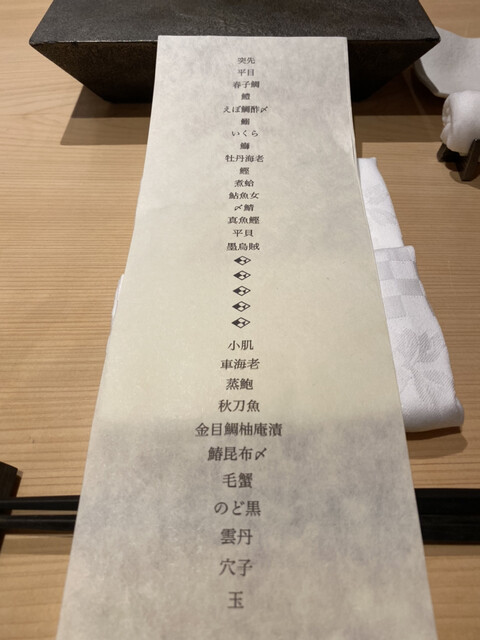 突先
平目
春子鯛
鱧
えぼ鯛酢〆
鮑
いくら
鰤
牡丹海老
鰹
煮蛤
鮎魚女
〆鯖
真魚鰹
平貝
墨烏賊
小肌
車海老
蒸鮑
秋刀魚
金目鯛柚庵漬
鰆昆布〆
毛蟹
のど黒
雲丹
穴子
玉